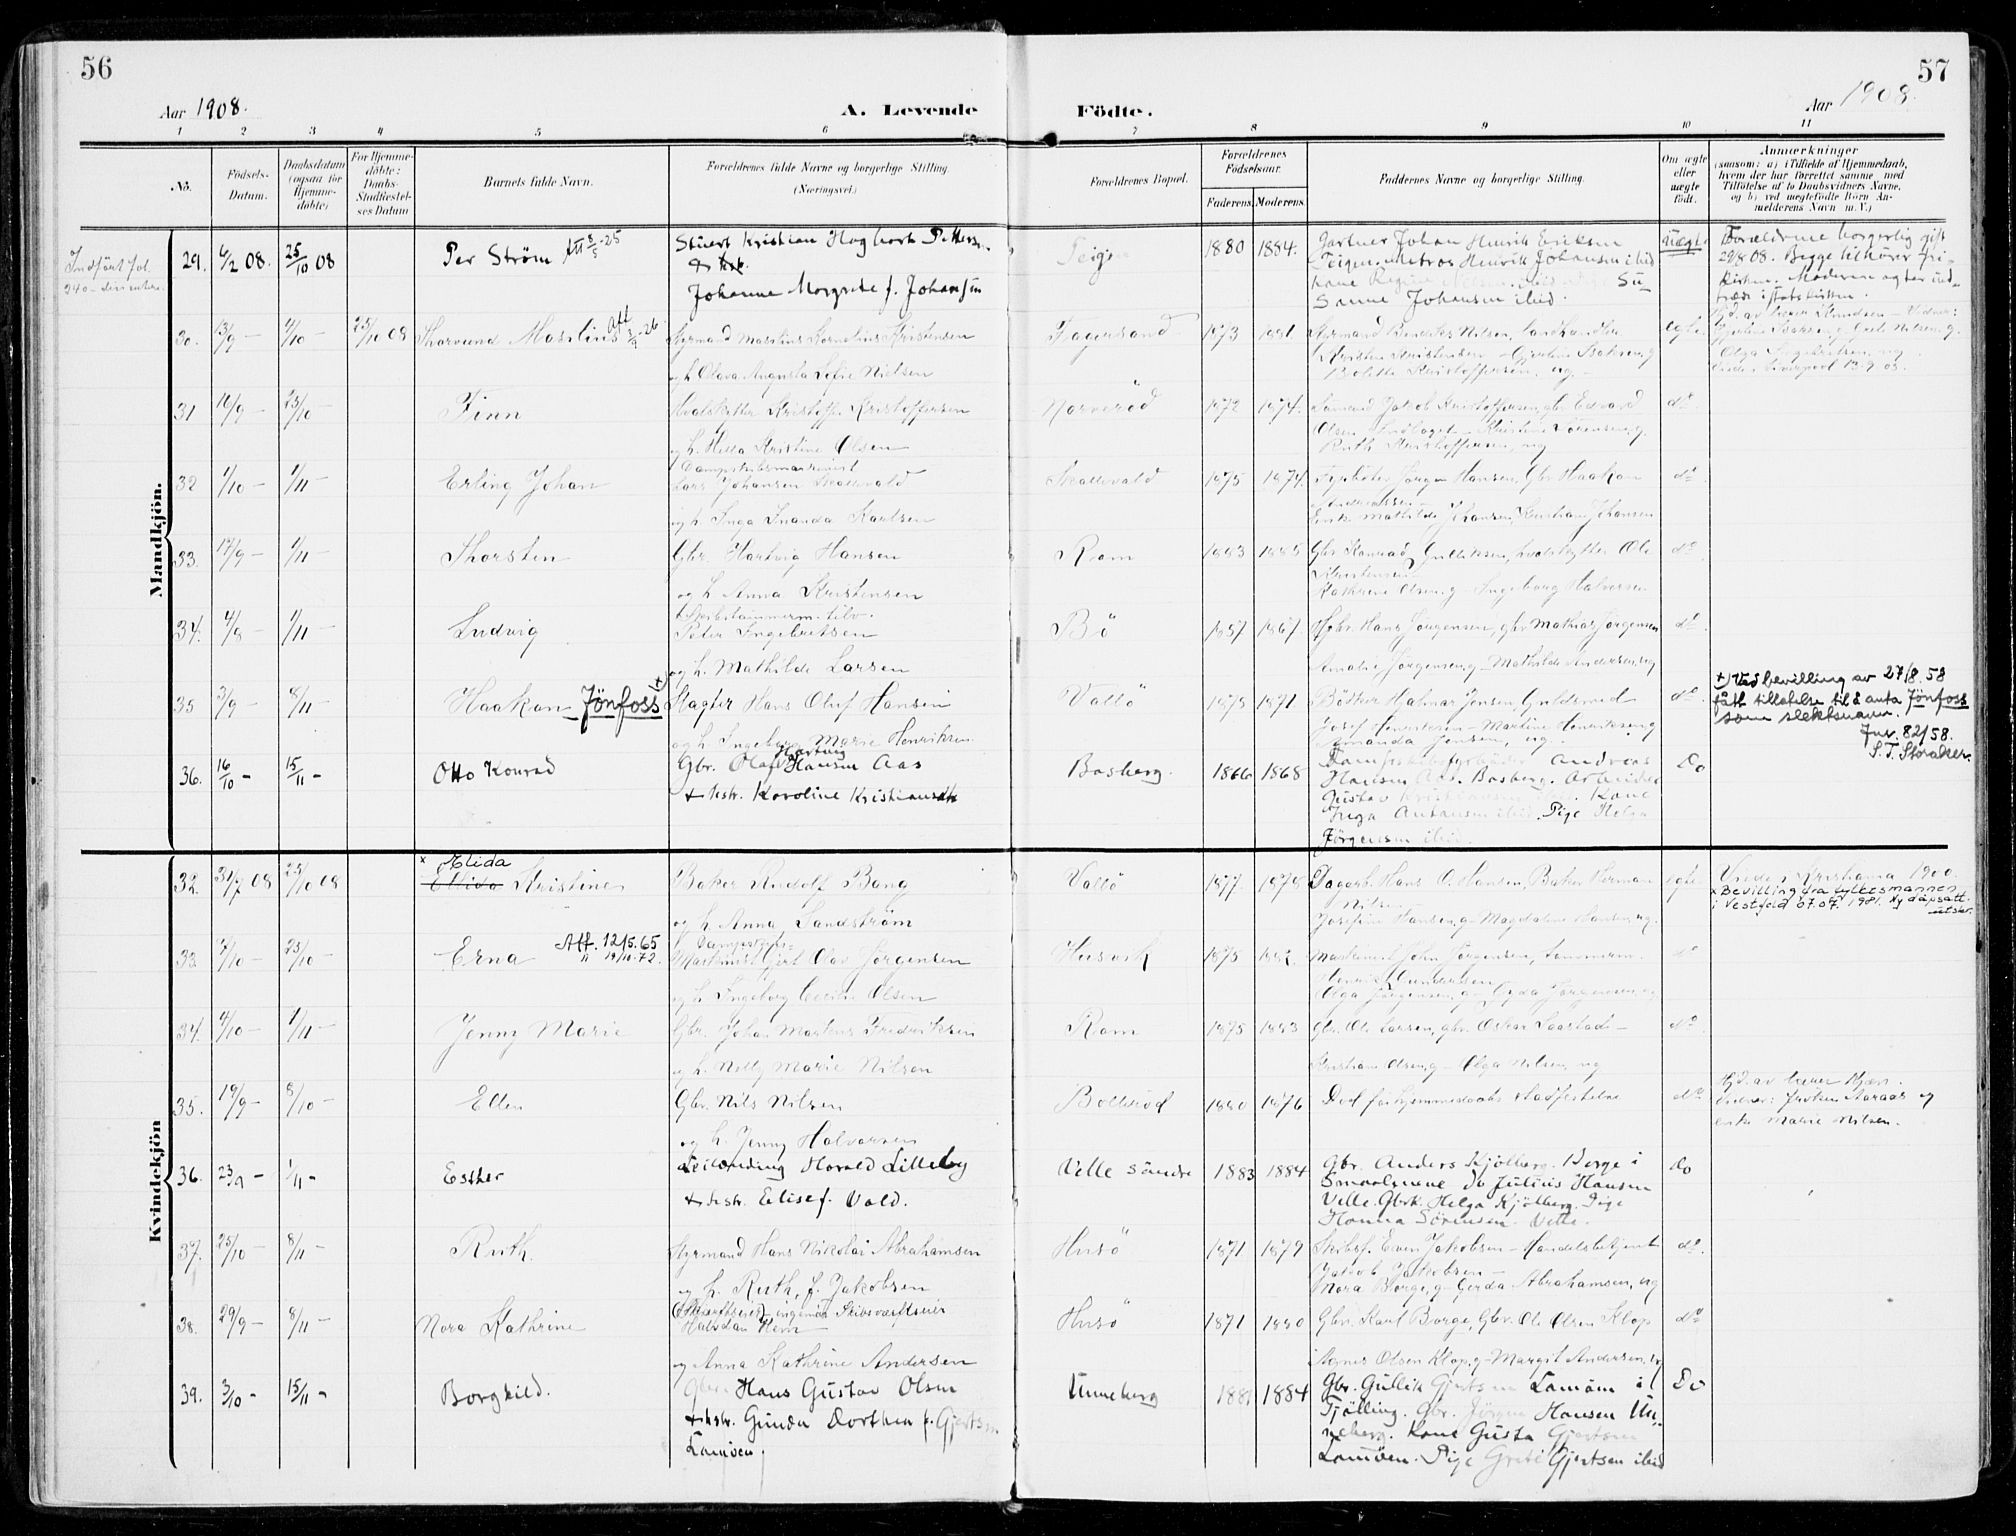 56
57
Aar 1908.
A. Levende
Födte.
Aar 1908.
1 2 3 4 5 6 7 8 9 10 11
No.
Födsels-Datum.
Daabsdatum (ogsaa for Hjemme-döbte)
For Hjemme-döbte: Daabs-Stadfæstel-ses Datum
Barnets fulde Navn.
Forældrenes fulde Navne og borgerlige Stilling.
(Næringsvei.)
Forældrenes Bopæl.
Forældrenes Födselsaar.
Faderens. Moderens.
Faddernes Navne og borgerlige Stilling.
Om ægte eller uægte födt.
Anmærkninger
(saasom: a) i Tilfælde af Hjemmedaab,
hvem der har forrettet samme, med
Tilföielse af to Daabsvidners Navne,
og b) ved uægtefödte Börn An-
melderens Navn m. V.)
Mandkjön.
29. 6/2 08. 25/10 08 Per Strøm Att 8/5-25 Stuert Kristian Hagbart
& hst.
Johanne Margrete f. Johansen
1880 1884. Gartner Johan Henrik Eriksen
Teigen. matros Henrik Johansen ibid
Sanne Johansen ibid.
Uægte Forældrene borgerlig gift
29/8 08. Begge tilhører fri-
kirken. Moderen agter ud-
træde i statskirken.
30. 13/9 – 4/10 – 25/10 08 Thorvund Masilius Att -26 Styrmand Kornelius Kristensen
og h. Olava Augusta Sofie Nielsen
Fagersand 1873 1881 Styrmand Nilsen, Landhandler
Kristen Kristensen –
Bolette Kristoffersen, ug. –
egte.
Olga Ingebretsen, ug.
Liverpool
31 16/9 – 25/10 – Finn Hvalskytter Kristoff. Kristoffersen
og h. Hilda Kristine Olsen
Norveröd 1872 1874. Jakob Kristoffersen, gbr. Edvard
Olsen
Ruth Kristoffersen, ug
do
32 1/10 – 1/11 – Erling Johan Dampskibsmaskinist
Lars Johansen Skallevald
og h. Inga Amanda Karlsen
Skallevald 1875 1874. Fyrböter Jörgen Hansen, Gbr Haakon
Andreassen –
Enke Mathilde Johansen, Kristiane Johansen
do
33. 17/9 – 1/11 – Thorsten Gbr. Hartvig Hansen
og h. Anna Kristensen
Rom 1883 1885 Gbr. Konrad Gulliksen, hvalskytter Ole
Kristensen –
Kathrine Olsen, g – Ingeborg Halvorsen
do
34. 4/9 – 1/11 – Ludvig Skibstømmerm.
Peter Ingebretsen
og h. Mathilde Larsen
Bö 1857 1867. Gbr. Hans Jörgensen, gbr Mathias Jörgensen
Amalie Jörgensen, g – Mathilde Andersen, ug
do
35 3/9 – 8/11 – Haakon Jönfoss +) Slagter Hans Oluf Hansen
og h. Ingeborg Marie Henriksen
Vallö 1875 1871 Bötker Halmar Jensen, Guldsmed
Josef Henriksen – Martine Henriksen, g
Amanda Jensen, ug.
do +) Ved bevilling av 27/8.58
fått tillatelse til å anta Jönfoss
som slektsnavn.
Jnr. 82/58.
S.T. Storaker.
36. 16/10 – 15/11 – Otto Konrad Gbr. Olaf Hartvig Hansen Aas
& hstr. Karoline Kristiansdtr.
Basberg. 1866 1868 Dampskibsfyrböter Andreas
Hansen Aas. Basberg. Arbeider
Gustav Kristiansen ibid. Kone
Inga Antonsen ibid. Pige Helga
Jörgensen ibid.
Do
Kvindekjön
32. 31/7 08 25/10 08 × Elida Ellida Kristine Baker Rudolf Bang
og h. Anna Sandström
Vallö 1877. 1878 Dagarb. Hans O. Hansen, Baker Herman
Nilsen
Josefine Hansen, g – Magdalene Hansen, ug.
egte Kristiania 1900.
× Bevilling fra fylkesmannen
i Vestfold 07.07.1981. Ny dåpsatt.
utstr.
33 7/10 – 25/10 – Erna Att. 12/5.65
" 19/10.72.
Dampskibs-
Maskinist Gjert Olav Jörgensen
og h. Ingeborg Olsen
Husvik 1875 1882. Maskinist John Jörgensen, Tømmerm.
Henrik Gundersen
Olga Jörgensen, g – Gyda Jörgensen, ug
34. 4/10 – 1/11 – Jenny Marie Gbr. Johan Martinus Fredriksen
og h. Nelly Marie Nilsen
Rom 1875 1883 Gbr. Ole Larsen, gbr. Oskar Saastad –
Kristiane Olsen, g – Olga Nilsen, ug
do
35. 19/9 – 8/10 – Ellen Gbr. Nils Nilsen
og h. Jenny Halvorsen
Bolleröd 1880 1876 Död før hjemmedaabs stadfestelse
do Hjd. av lærer
Vidner: Frøken og
enke Marie Nilsen.
36. 23/9 – 1/11 – Esther Leilending Harald Lilleby
& hstr. Elise f. Vold.
Velle söndre 1883 1884 Gbr. Anders Kjölberg. Borge i
Smaalenene Do Julius Hansen
Velle. Gbrk. Helga Kjölberg. Pige
Hanna Sörensen. Velle.
Do
37. 25/10 – 8/11 – Ruth. Styrmand Hans Nikolai Abrahamsen
og h. Ruth, f. Jakobsen
Husö 1871 1879 Skibsf. Even Jakobsen – Handelsbetjent
Jakob Jakobsen –
Nora Borge, g – Gerda Abrahamsen, ug
do.
38. 29/9 – 8/11 – Nora Kathrine ingeniör Skibsværftseier
Halvdan Hem
og Anna Kathrine Andersen
Husö 1871 1880 Gbr. Karl Borge, Gbr. Ole Olsen Klop
Agnes Olsen Klop, g – Margit Andersen, ug
do
39. 3/10 – 15/11 – Borghild. Gbr. Hans Gustav Olsen
& hstr. Gunda Dorthea f. Gjertsen
Lamöen.
Unneberg 1881 1884 Gbr. Gullik Gjertsen Lamöen i
Tjölling. Gbr. Jörgen Hansen Un-
neberg. Kone Gusta Gjertsen
Lamöen. Pige Grete Gjertsen ibid
Do